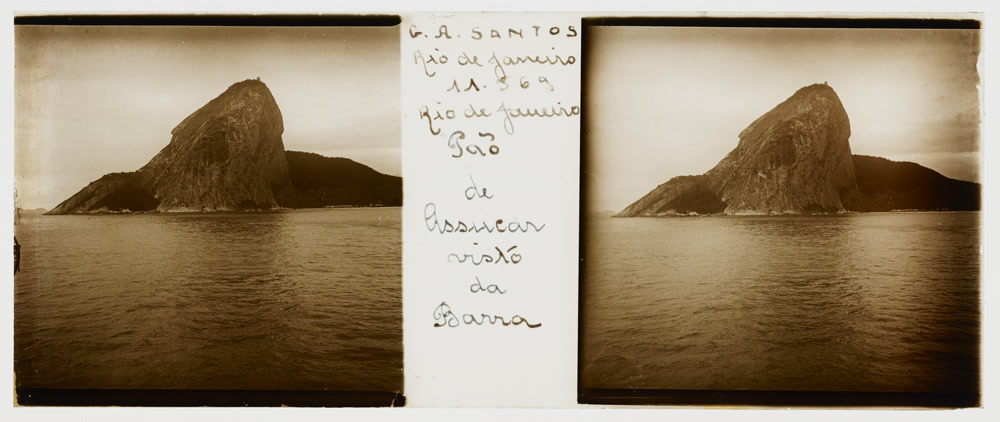 G. A. SANTOS
Rio de Janeiro
11.569
Rio de Janeiro
Pão
de
Assucar
visto
da
Barra